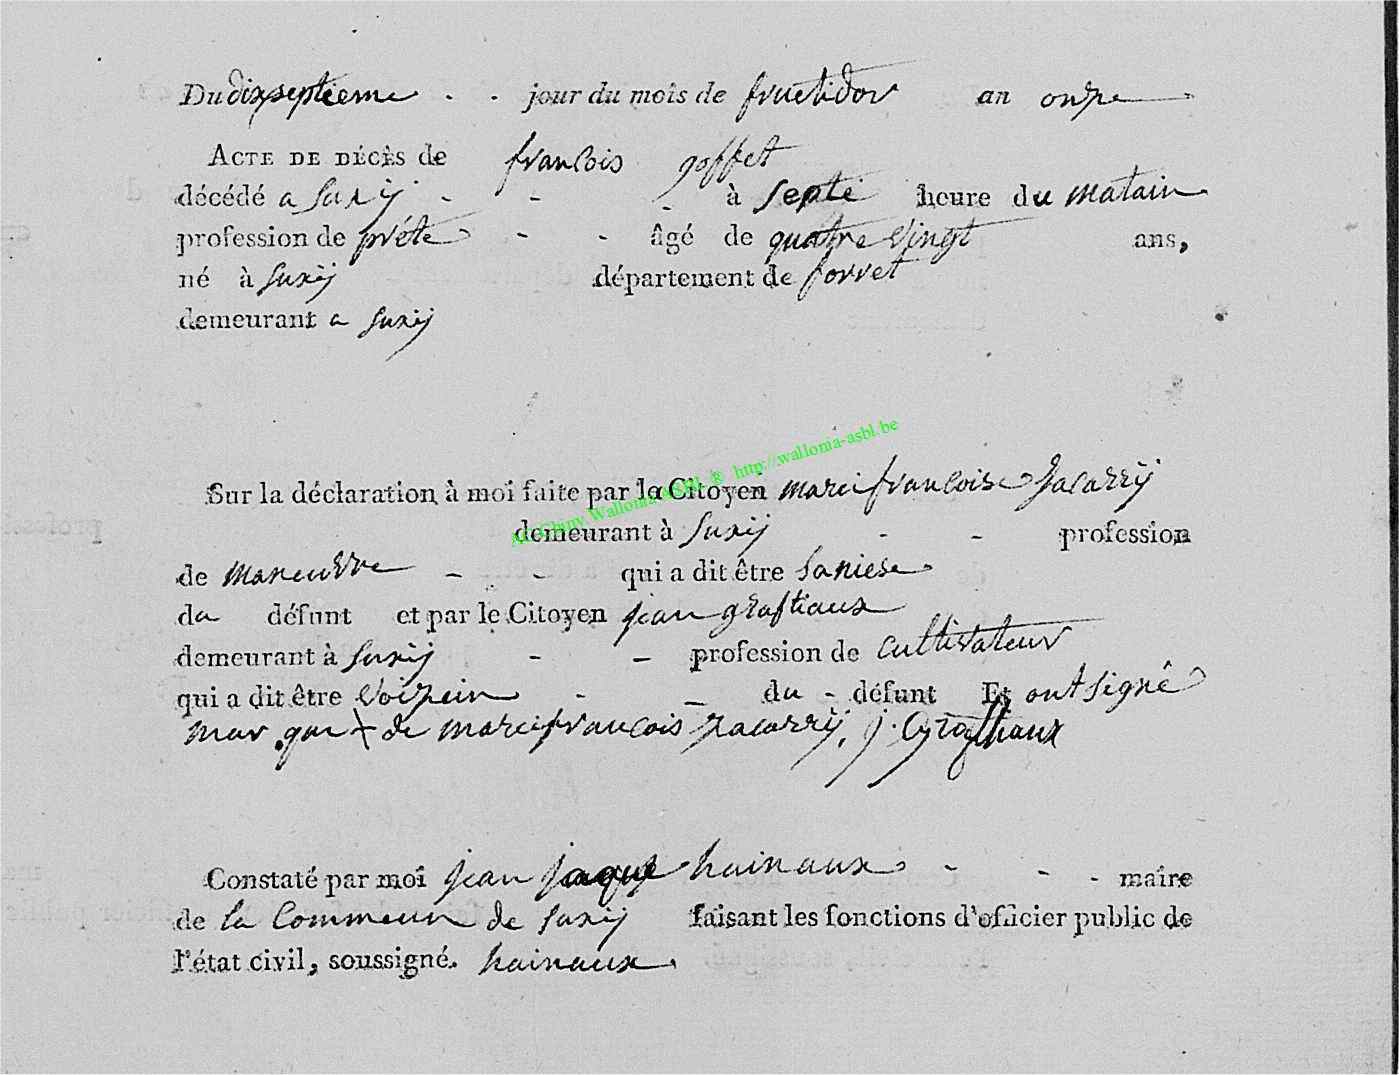 Du dixseptieme - - jour du mois de fructidor an onze
ACTE DE DÉCÈS de francois goffet
décédé a Suxÿ - - - à septe heure du matain
profession de préte - - âgé de quatre vingt ans,
né à Suxÿ département de forret
demeurant a Suxÿ
Sur la déclaration à moi faite par la Citoyen marei francoise Jacarrÿ
AC Chiny Wallonia ASBL ® http://wallonia-asbl.be
demeurant à Suxÿ - - profession
de maneuvre - - qui a dit être saniese
du défunt et par le Citoyen jean graftiaux
demeurant à Suxÿ - - profession de cultivateur
qui a dit être voizein - - du - défunt Et ont signé
mar.que + de mareifrancois zacarrÿ, j. Grafthaux
Constaté par moi jean jaque hainaux - - - maire
de la Commeun de Suxÿ faisant les fonctions d'officier public de
l'état civil, soussigné. hainaux